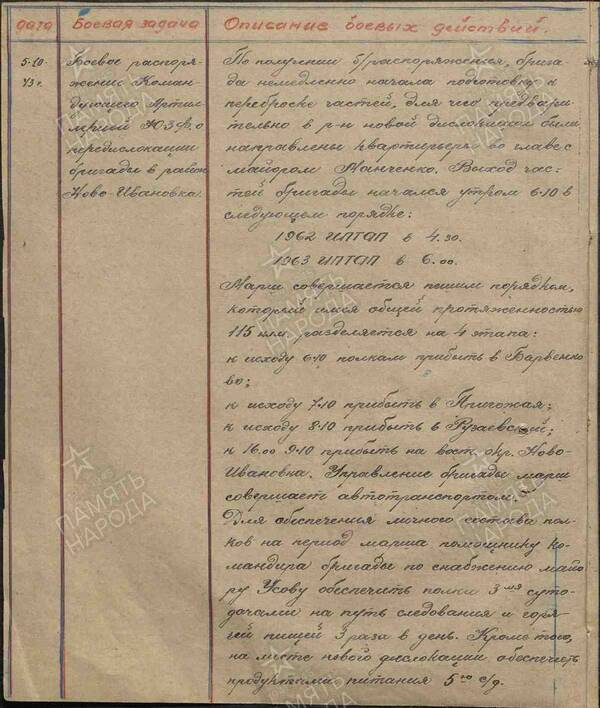 Дата
Боевая задача
Описание боевых действий.
5.10
43 г.
Боевое распоря-
жение Коман-
дующего Артил-
лерией ЮЗФ, о
передислокации
бригады в район
Ново-Ивановка.
По получении б/распоряжения, брига-
да немедленно начала подготовку к
переброске частей, для чего предвари-
тельно в р-н новой дислокации были
направлены квартирьеры во главе с
майором Манченко. Выход час-
тей бригады начался утром 6.10 в
следующем порядке:
1962 ИПТАП в 4.30.
1963 ИПТАП в 6.00.
Марш совершается пешим порядком,
который имея общей протяженностью
115 км разделяется на 4 этапа:
к исходу 6.10 полкам прибыть в Барвенко
во;
к исходу 7.10 прибыть в Пригожая;
к исходу 8.10 прибыть в Рузаевский;
к 16.00 9.10 прибыть на вост. окр. Ново-
Ивановка. Управление бригады марш
совершает автотранспортом.
Для обеспеченья личного состава пол-
ков на период марша помощнику ко-
мандира бригады по снабжению майо
ру Усову обеспечить полки 3мя суто-
дачами на путь следования и горя-
чей пищей 3 раза в день. Кроме того,
на месте нового дислокации обеспечить
продуктами питания 5ю с/д.
ПАМЯТЬ
НАРОДА
ПАМЯТЬ
НАРОДА
ПАМЯТЬ
НАРОДА
ПАМЯТЬ
НАРОДА
ПАМЯТЬ
НАРОДА